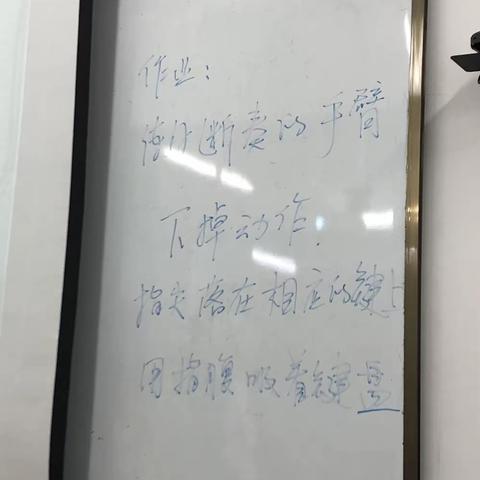 作业:
体会断奏的手臂
下掉动作.
指尖落在相应的键上
用指腹吸着键盘